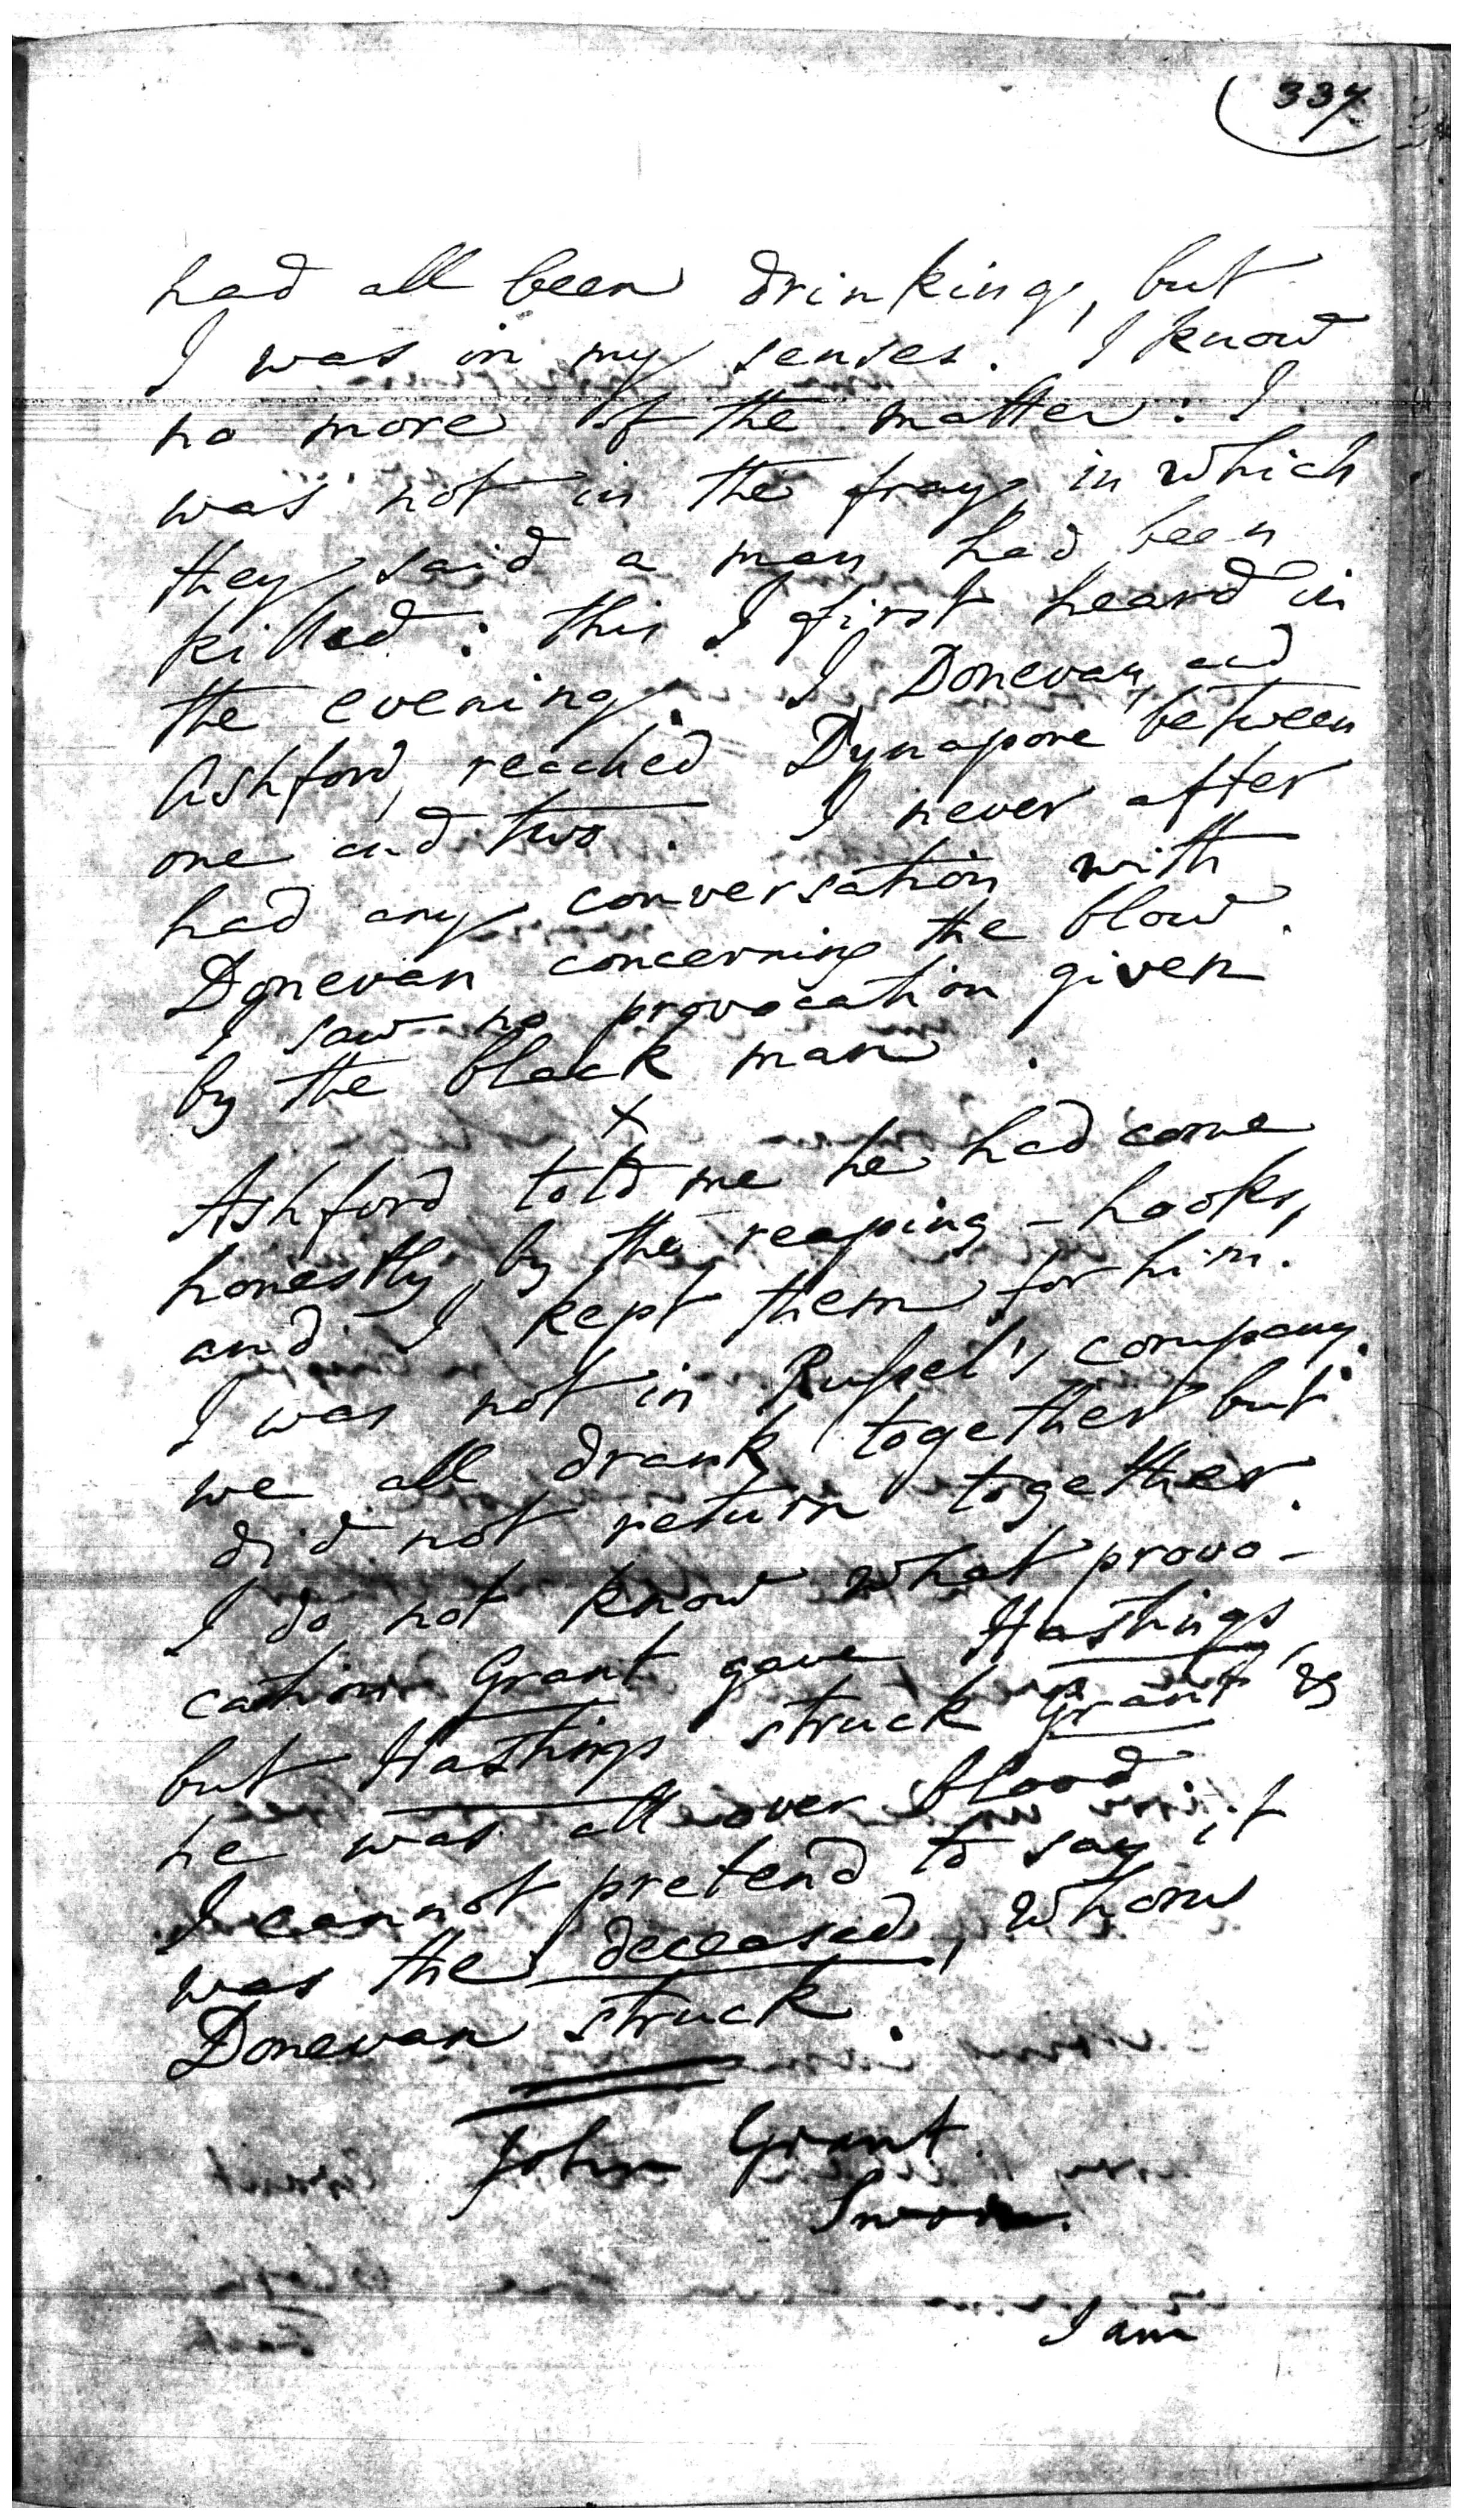 337
had all been drinking, but
I was in my senses. I know
no more of the matter: I
was not in the fray, in which
they said a man had been
killed: this I first heard in
the evening. I Donevan, and
Ashford, reached Dynapore between
one and two. I never after
had any conversation with
Donevan concerning the blow.
I saw no provocation given
by the black man.
x
Ashford told me he had come
honestly by the reaping-hooks,
and I kept them for him.
I was not in Russel's company.
we all drank together but
did not return together.
I do not know what provo-
cation Grant gave Hastings,
but Hastings struck Grant &
he was all over blood.
I cannot pretend to say it
was the deceased, whom
Donevan struck.
John Grant.
Sworn.
I am